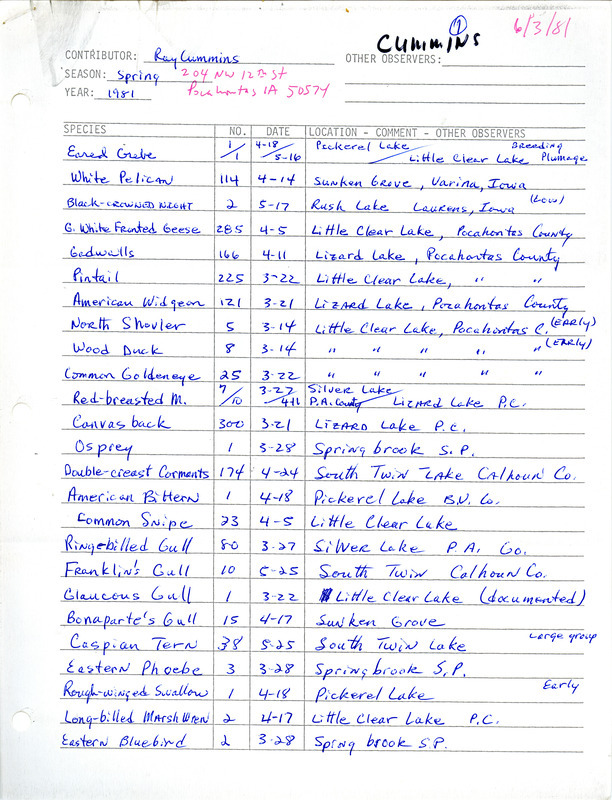 ① 6/3/81
CUMMINS
CONTRIBUTOR: Ray Cummins OTHER OBSERVERS:
SEASON: Spring 204 NW 12th St
YEAR: 1981 Pocahontas IA 50574
SPECIES NO. DATE LOCATION - COMMENT - OTHER OBSERVERS
Eared Grebe 1/1 4-18/5-16 Pickerel Lake / Little Clear Lake Breeding Plumage
White Pelican 114 4-14 Sunken Grove, Varina, Iowa
Black-crowned Night 2 5-17 Rush Lake Laurens, Iowa (Low)
G. White Fronted Geese 285 4-5 Little Clear Lake, Pocahontas County
Gadwalls 166 4-11 Lizard Lake, Pocahontas County
Pintail 225 3-22 Little Clear Lake, " "
American Widgeon 121 3-21 Lizard Lake, Pocahontas County
North Shovler 5 3-14 Little Clear Lake, Pocahontas C. (EARLY)
Wood Duck 8 3-14 " " " " " (EARLY)
Common Goldeneye 25 3-22 " " " " "
Red-breasted M. 7/10 3-27/4-11 Silver Lake P.A. County / Lizard Lake P.C.
Canvasback 300 3-21 Lizard Lake P.C.
Osprey 1 3-28 Springbrook S.P.
Double-creast Corments 174 4-24 South Twin Lake Calhoun Co.
American Bittern 1 4-18 Pickerel Lake B.V. Co.
Common Snipe 23 4-5 Little Clear Lake
Ringe-billed Gull 80 3-27 Silver Lake P.A. Co.
Franklin's Gull 10 5-25 South Twin Calhoun Co.
Glaucous Gull 1 3-22 Little Clear Lake (documented)
Bonaparte's Gull 15 4-17 Sunken Grove
Caspian Tern 38 5-25 South Twin Lake Large group
Eastern Phoebe 3 3-28 Springbrook S.P.
Rough-winged Swallow 1 4-18 Pickerel Lake Early
Long-billed Marsh Wren 2 4-17 Little Clear Lake P.C.
Eastern Bluebird 2 3-28 Spring brook S.P.